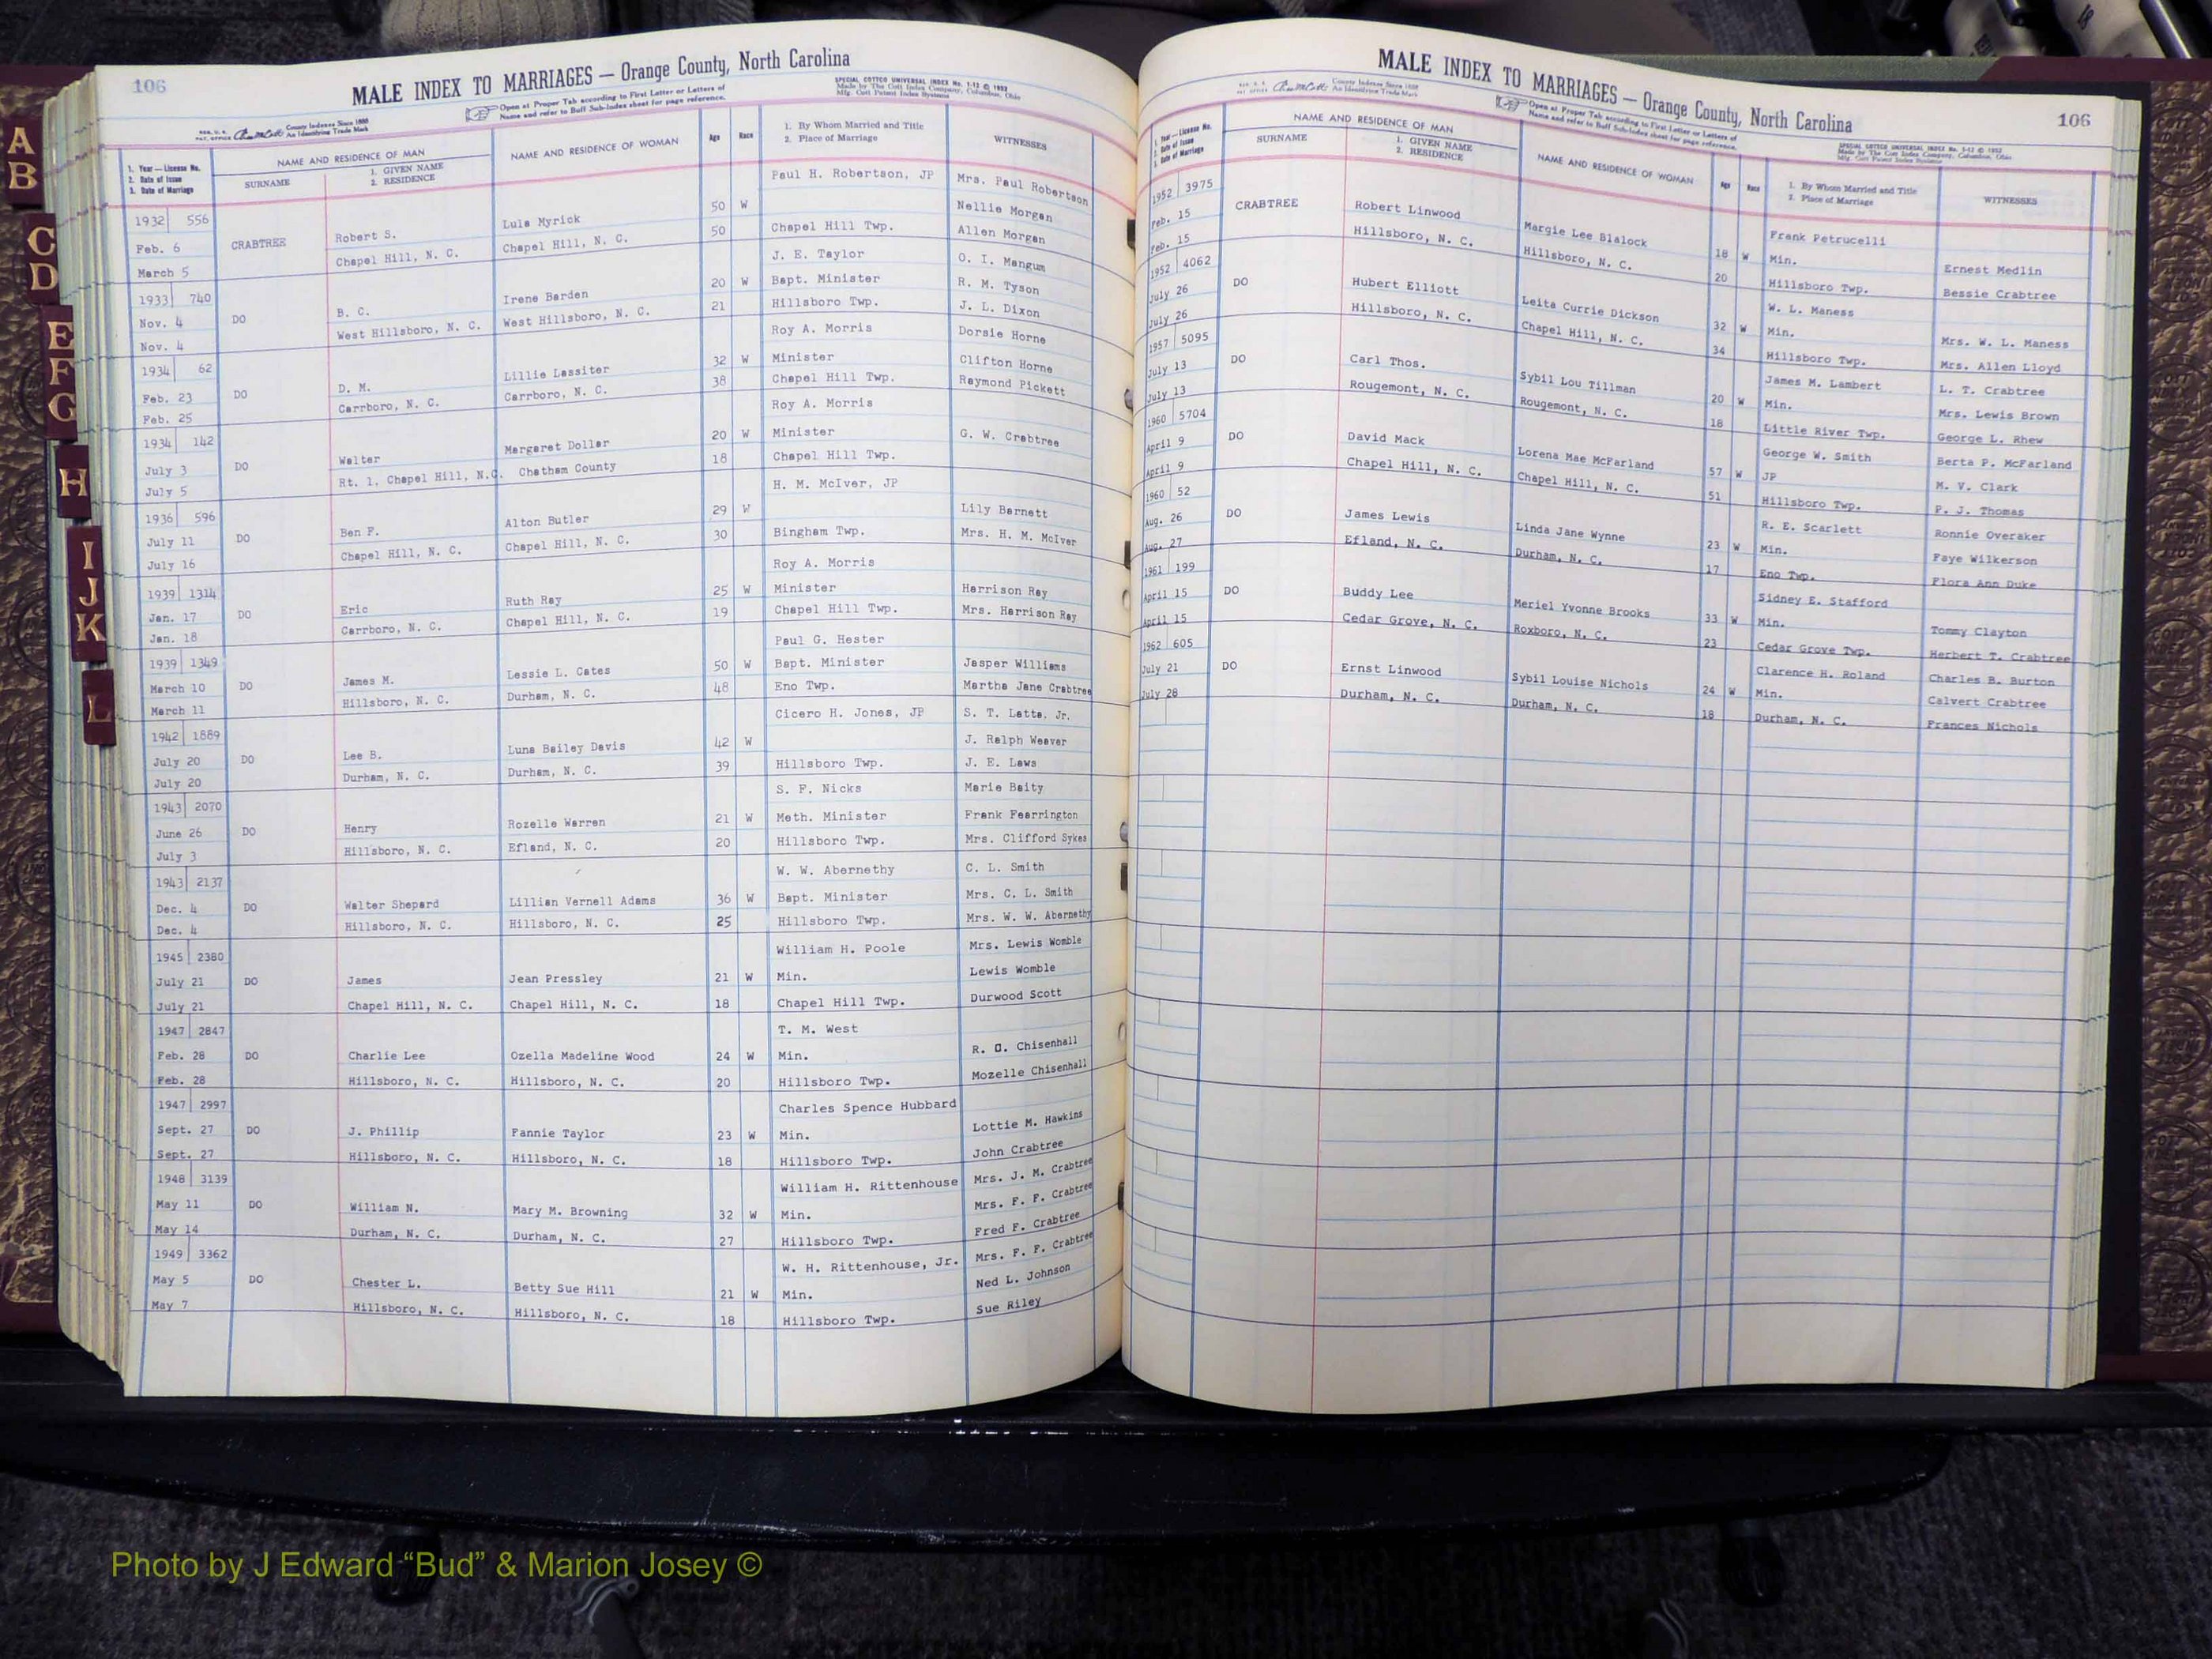 106
MALE INDEX TO MARRIAGES — Orange County, North Carolina
Open at Proper Tab according to First Letter or Letters of
Name and refer to Buff Sub-Index sheet for page reference.
SPECIAL COTTCO UNIVERSAL INDEX No. 1-12 © 1952
Made by The Cott Index Company, Columbus, Ohio
Mfg. Cott Patent Index Systems
County Indexes Since 1888
An Identifying Trade Mark
1. Year — License No.
2. Date of Issue
3. Date of Marriage
NAME AND RESIDENCE OF MAN
SURNAME
1. GIVEN NAME
2. RESIDENCE
NAME AND RESIDENCE OF WOMAN
Age
Race
1. By Whom Married and Title
2. Place of Marriage
WITNESSES
1932 556 Paul H. Robertson, JP Mrs. Paul Robertson
Feb. 6 CRABTREE Robert S. Lula Myrick 50 W Nellie Morgan
March 5 Chapel Hill, N. C. Chapel Hill, N. C. 50 Chapel Hill Twp. Allen Morgan
1933 740 J. E. Taylor O. I. Mangum
Nov. 4 DO B. C. Irene Barden 20 W Bapt. Minister R. M. Tyson
Nov. 4 West Hillsboro, N. C. West Hillsboro, N. C. 21 Hillsboro Twp. J. L. Dixon
1934 62 Roy A. Morris Dorsie Horne
Feb. 23 DO D. M. Lillie Lassiter 32 W Minister Clifton Horne
Feb. 25 Carrboro, N. C. Carrboro, N. C. 38 Chapel Hill Twp. Raymond Pickett
1934 142 Roy A. Morris
July 3 DO Walter Margaret Dollar 20 W Minister G. W. Crabtree
July 5 Rt. 1, Chapel Hill, N.C. Chatham County 18 Chapel Hill Twp.
1936 596 H. M. McIver, JP
July 11 DO Ben F. Alton Butler 29 W Lily Barnett
July 16 Chapel Hill, N. C. Chapel Hill, N. C. 30 Bingham Twp. Mrs. H. M. McIver
1939 1314 Roy A. Morris
Jan. 17 DO Eric Ruth Ray 25 W Minister Harrison Ray
Jan. 18 Carrboro, N. C. Chapel Hill, N. C. 19 Chapel Hill Twp. Mrs. Harrison Ray
1939 1349 Paul G. Hester
March 10 DO James M. Lessie L. Cates 50 W Bapt. Minister Jasper Williams
March 11 Hillsboro, N. C. Durham, N. C. 48 Eno Twp. Martha Jane Crabtree
1942 1889 Cicero H. Jones, JP S. T. Latta, Jr.
July 20 DO Lee B. Luna Bailey Davis 42 W J. Ralph Weaver
July 20 Durham, N. C. Durham, N. C. 39 Hillsboro Twp. J. E. Laws
1943 2070 S. F. Nicks Marie Baity
June 26 DO Henry Rozelle Warren 21 W Meth. Minister Frank Fearrington
July 3 Hillsboro, N. C. Efland, N. C. 20 Hillsboro Twp. Mrs. Clifford Sykes
1943 2137 W. W. Abernethy C. L. Smith
Dec. 4 DO Walter Shepard Lillian Vernell Adams 36 W Bapt. Minister Mrs. C. L. Smith
Dec. 4 Hillsboro, N. C. Hillsboro, N. C. 25 Hillsboro Twp. Mrs. W. W. Abernethy
1945 2380 William H. Poole Mrs. Lewis Womble
July 21 DO James Jean Pressley 21 W Min. Lewis Womble
July 21 Chapel Hill, N. C. Chapel Hill, N. C. 18 Chapel Hill Twp. Durwood Scott
1947 2847 T. M. West
Feb. 28 DO Charlie Lee Ozella Madeline Wood 24 W Min. R. O. Chisenhall
Feb. 28 Hillsboro, N. C. Hillsboro, N. C. 20 Hillsboro Twp. Mozelle Chisenhall
1947 2997 Charles Spence Hubbard
Sept. 27 DO J. Phillip Fannie Taylor 23 W Min. Lottie M. Hawkins
Sept. 27 Hillsboro, N. C. Hillsboro, N. C. 18 Hillsboro Twp. John Crabtree
1948 3139 William H. Rittenhouse Mrs. J. M. Crabtree
May 11 DO William N. Mary M. Browning 32 W Min. Mrs. F. F. Crabtree
May 14 Durham, N. C. Durham, N. C. 27 Hillsboro Twp. Fred F. Crabtree
1949 3362 W. H. Rittenhouse, Jr. Mrs. F. F. Crabtree
May 5 DO Chester L. Betty Sue Hill 21 W Min. Ned L. Johnson
May 7 Hillsboro, N. C. Hillsboro, N. C. 18 Hillsboro Twp. Sue Riley
MALE INDEX TO MARRIAGES — Orange County, North Carolina
106
County Indexes Since 1888
An Identifying Trade Mark
Open at Proper Tab according to First Letter or Letters of
Name and refer to Buff Sub-Index sheet for page reference.
SPECIAL COTTCO UNIVERSAL INDEX No. 1-12 © 1952
Made by The Cott Index Company, Columbus, Ohio
Mfg. Cott Patent Index Systems
1. Year — License No.
2. Date of Issue
3. Date of Marriage
NAME AND RESIDENCE OF MAN
SURNAME
1. GIVEN NAME
2. RESIDENCE
NAME AND RESIDENCE OF WOMAN
Age
Race
1. By Whom Married and Title
2. Place of Marriage
WITNESSES
1952 3975 Frank Petrucelli
Feb. 15 CRABTREE Robert Linwood Margie Lee Blalock 18 W Min. Ernest Medlin
Feb. 15 Hillsboro, N. C. Hillsboro, N. C. 20 Hillsboro Twp. Bessie Crabtree
1952 4062 W. L. Maness
July 26 DO Hubert Elliott Leita Currie Dickson 32 W Min. Mrs. W. L. Maness
July 26 Hillsboro, N. C. Chapel Hill, N. C. 34 Hillsboro Twp. Mrs. Allen Lloyd
1957 5095 James M. Lambert L. T. Crabtree
July 13 DO Carl Thos. Sybil Lou Tillman 20 W Min. Mrs. Lewis Brown
July 13 Rougemont, N. C. Rougemont, N. C. 18 Little River Twp. George L. Rhew
1960 5704 George W. Smith Berta P. McFarland
April 9 DO David Mack Lorena Mae McFarland 57 W JP M. V. Clark
April 9 Chapel Hill, N. C. Chapel Hill, N. C. 51 Hillsboro Twp. P. J. Thomas
1960 52 R. E. Scarlett Ronnie Overaker
Aug. 26 DO James Lewis Linda Jane Wynne 23 W Min. Faye Wilkerson
Aug. 27 Efland, N. C. Durham, N. C. 17 Eno Twp. Flora Ann Duke
1961 199 Sidney E. Stafford
April 15 DO Buddy Lee Meriel Yvonne Brooks 33 W Min. Tommy Clayton
April 15 Cedar Grove, N. C. Roxboro, N. C. 23 Cedar Grove Twp. Herbert T. Crabtree
1962 605 Clarence H. Roland Charles B. Burton
July 21 DO Ernst Linwood Sybil Louise Nichols 24 W Min. Calvert Crabtree
July 28 Durham, N. C. Durham, N. C. 18 Durham, N. C. Frances Nichols
A
B
C
D
E
F
G
H
I
J
K
L
Photo by J Edward “Bud” & Marion Josey ©